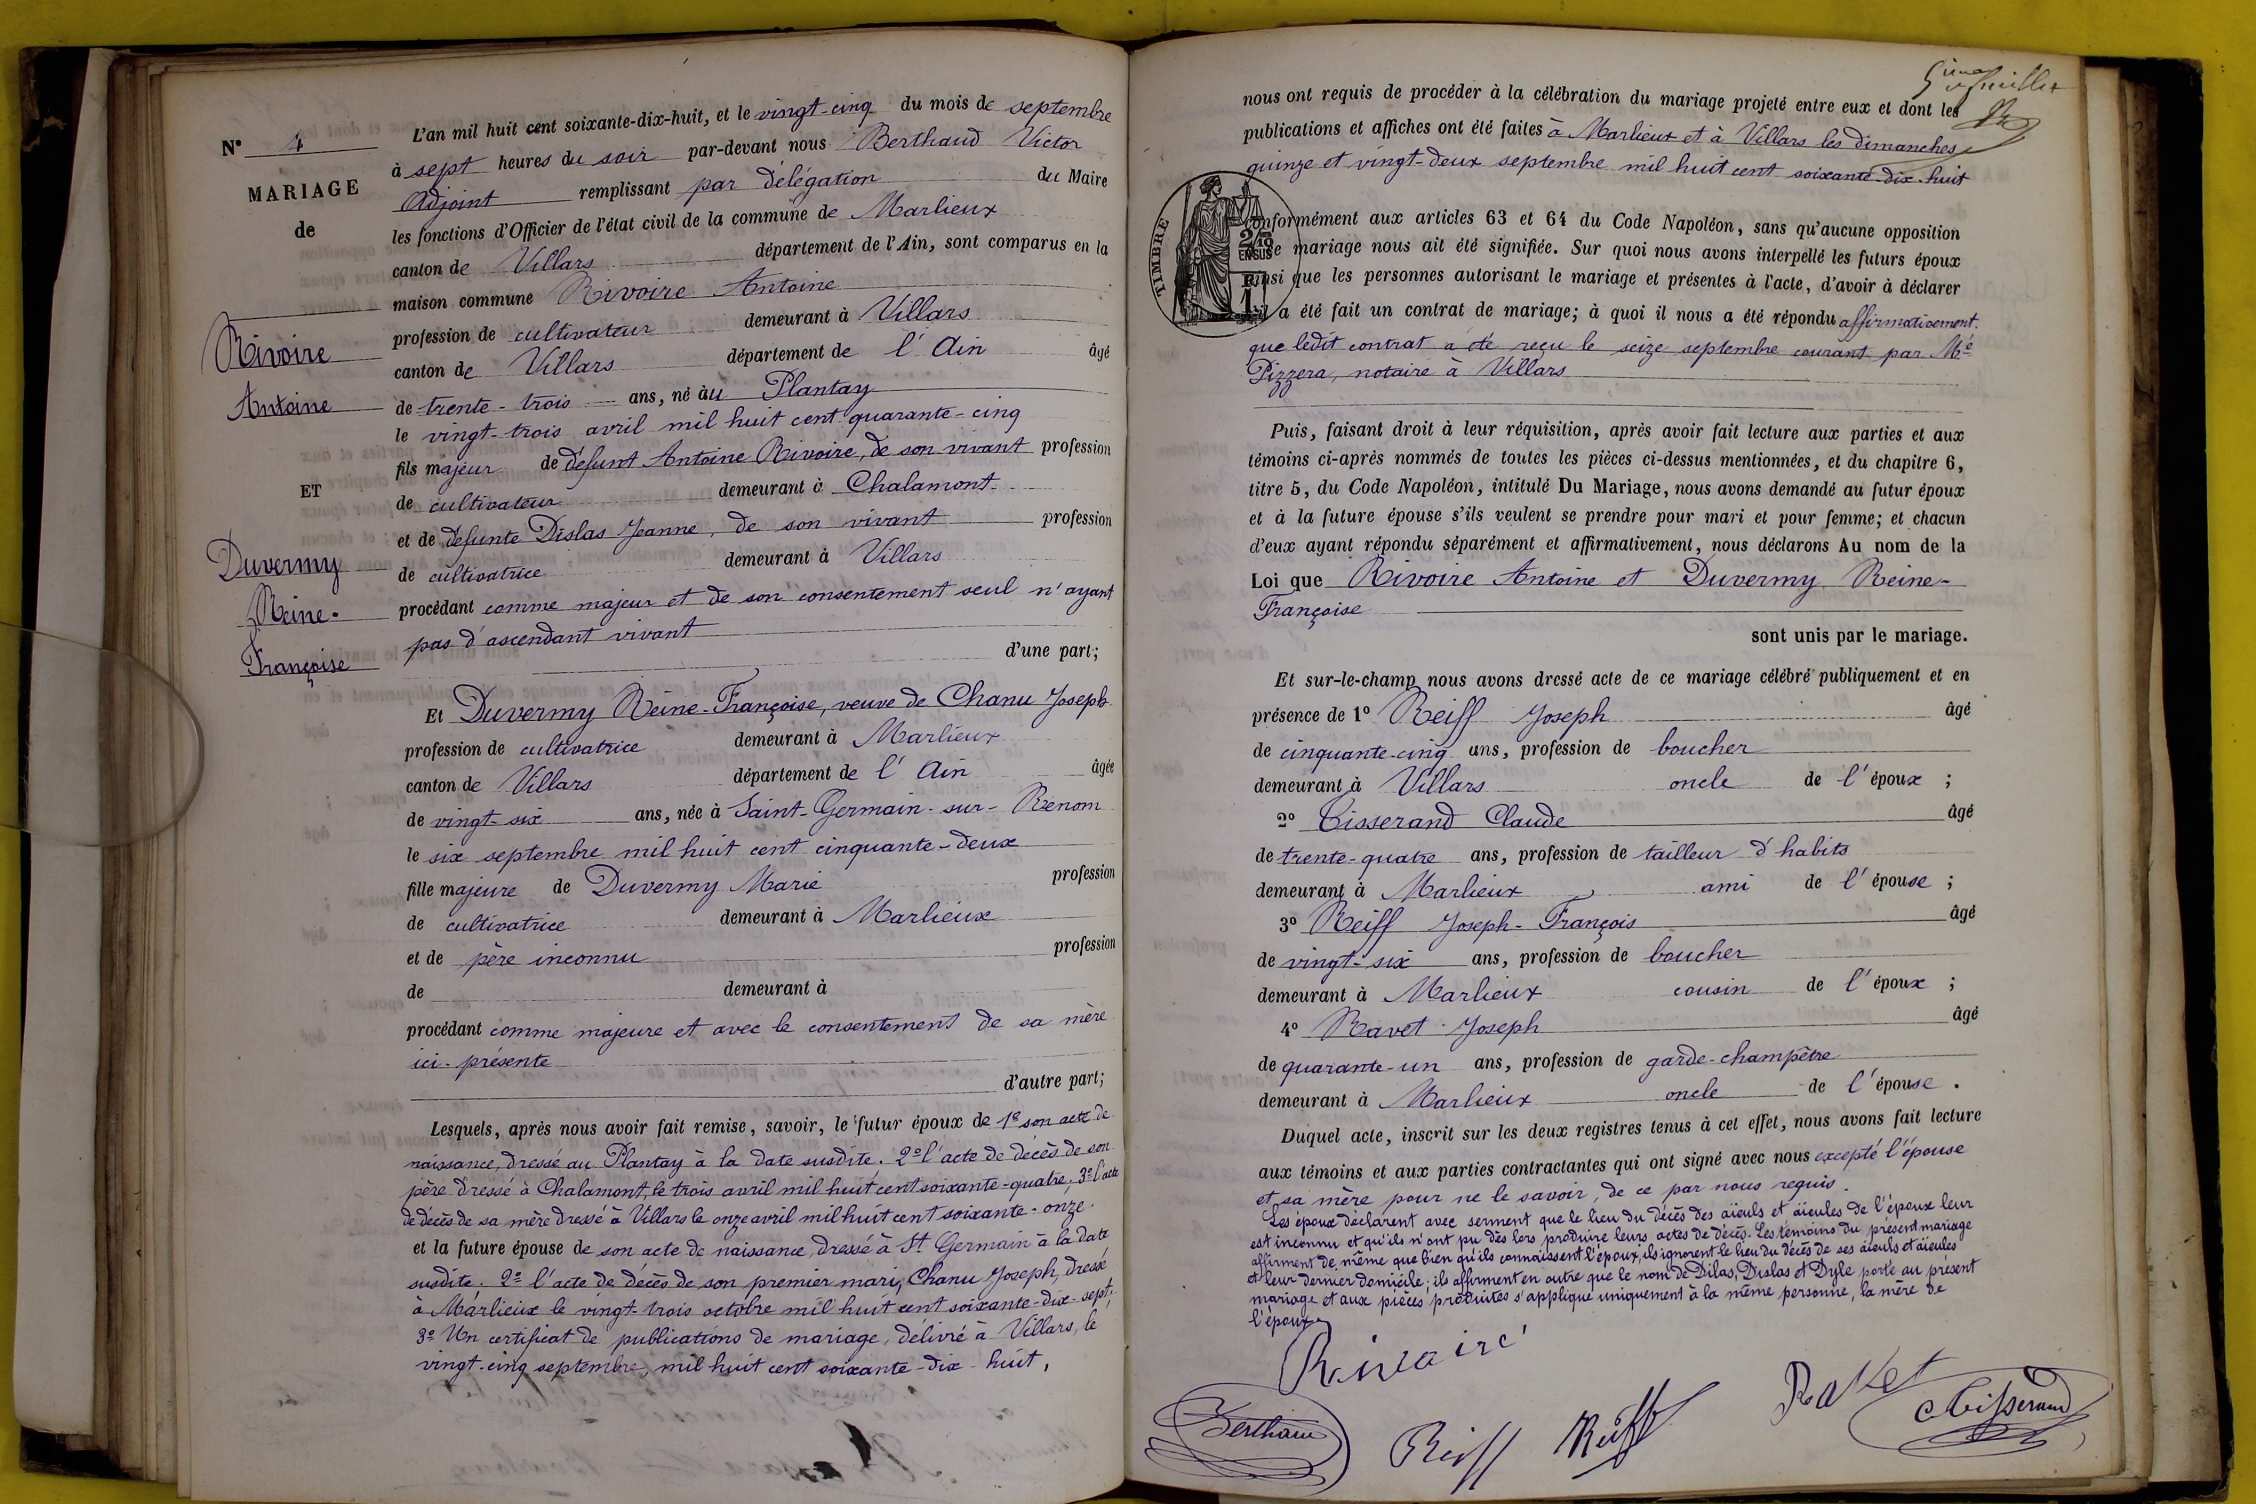 N° 4
MARIAGE
de
Rivoire
Antoine
ET
Duvermy
Reine-
Françoise
L'an mil huit cent soixante-dix-huit, et le vingt-cinq du mois de septembre
à sept heures du soir par-devant nous Berthaud Victor
Adjoint remplissant par délégation du Maire
les fonctions d'Officier de l'état civil de la commune de Marlieux
canton de Villars département de l'Ain, sont comparus en la
maison commune Rivoire Antoine
profession de cultivateur demeurant à Villars
canton de Villars département de l'Ain âgé
de trente-trois ans, né au Plantay
le vingt-trois avril mil huit cent quarante-cinq
fils majeur de défunt Antoine Rivoire, de son vivant profession
de cultivateur demeurant à Chalamont
et de défunte Dislas Jeanne, de son vivant profession
de cultivatrice demeurant à Villars
procédant comme majeur et de son consentement seul n'ayant
pas d'ascendant vivant
d'une part;
Et Duvermy Reine-Françoise, veuve de Chanu Joseph
profession de cultivatrice demeurant à Marlieux
canton de Villars département de l'Ain âgée
de vingt-six ans, née à Saint-Germain-sur-Renom
le six septembre mil huit cent cinquante-deux
fille majeure de Duvermy Marie profession
de cultivatrice demeurant à Marlieux
et de père inconnu profession
de demeurant à
procédant comme majeure et avec le consentement de sa mère
ici-présente
d'autre part;
Lesquels, après nous avoir fait remise, savoir, le futur époux de 1° son acte de
naissance, dressé au Plantay à la date susdite. 2° l'acte de décès de son
père dressé à Chalamont, le trois avril mil huit cent soixante-quatre. 3° l'acte
de décès de sa mère dressé à Villars le onze avril mil huit cent soixante-onze.
et la future épouse de son acte de naissance, dressé à St Germain à la date
susdite. 2° l'acte de décès de son premier mari, Chanu Joseph, dressé
à Marlieux le vingt-trois octobre mil huit cent soixante-dix-sept;
3° Un certificat de publications de mariage, délivré à Villars, le
vingt-cinq septembre, mil huit cent soixante-dix-huit,
5ième feuillet
nous ont requis de procéder à la célébration du mariage projeté entre eux et dont les
publications et affiches ont été faites à Marlieux et à Villars les dimanches
quinze et vingt-deux septembre mil huit cent soixante-dix-huit
TIMBRE
2/10 EN SUS
conformément aux articles 63 et 64 du Code Napoléon, sans qu'aucune opposition
mariage nous ait été signifiée. Sur quoi nous avons interpellé les futurs époux
ainsi que les personnes autorisant le mariage et présentes à l'acte, d'avoir à déclarer
a été fait un contrat de mariage; à quoi il nous a été répondu affirmativement.
que ledit contrat a été reçu le seize septembre courant par Me
Pizzera, notaire à Villars
Puis, faisant droit à leur réquisition, après avoir fait lecture aux parties et aux
témoins ci-après nommés de toutes les pièces ci-dessus mentionnées, et du chapitre 6,
titre 5, du Code Napoléon, intitulé Du Mariage, nous avons demandé au futur époux
et à la future épouse s'ils veulent se prendre pour mari et pour femme; et chacun
d'eux ayant répondu séparément et affirmativement, nous déclarons Au nom de la
Loi que Rivoire Antoine et Duvermy Reine-
Françoise
sont unis par le mariage.
Et sur-le-champ nous avons dressé acte de ce mariage célébré publiquement et en
présence de 1° Reiff Joseph âgé
de cinquante-cinq ans, profession de boucher
demeurant à Villars oncle de l'époux ;
2° Tisserand Claude âgé
de trente-quatre ans, profession de tailleur d'habits
demeurant à Marlieux ami de l'épouse ;
3° Reiff Joseph-François âgé
de vingt-six ans, profession de boucher
demeurant à Marlieux cousin de l'époux ;
4° Ravet Joseph âgé
de quarante-un ans, profession de garde-champêtre
demeurant à Marlieux oncle de l'épouse.
Duquel acte, inscrit sur les deux registres tenus à cet effet, nous avons fait lecture
aux témoins et aux parties contractantes qui ont signé avec nous excepté l'épouse
et sa mère pour ne le savoir, de ce par nous requis.
Les époux déclarent avec serment que le lieu du décès des aïeuls et aïeules de l'époux leur
est inconnu et qu'ils n'ont pu dès lors produire leurs actes de décès. Les témoins du présent mariage
affirment de même que bien qu'ils connaissent l'époux, ils ignorent le lieu du décès de ses aïeuls et aïeules
et leur dernier domicile; ils affirment en outre que le nom de Dilas, Dislas et Dyle porté au présent
mariage et aux pièces produites s'applique uniquement à la même personne, la mère de
l'époux.
Rivoire
Ravet
Berthaud
Reiff
Reiff
C Tisserand